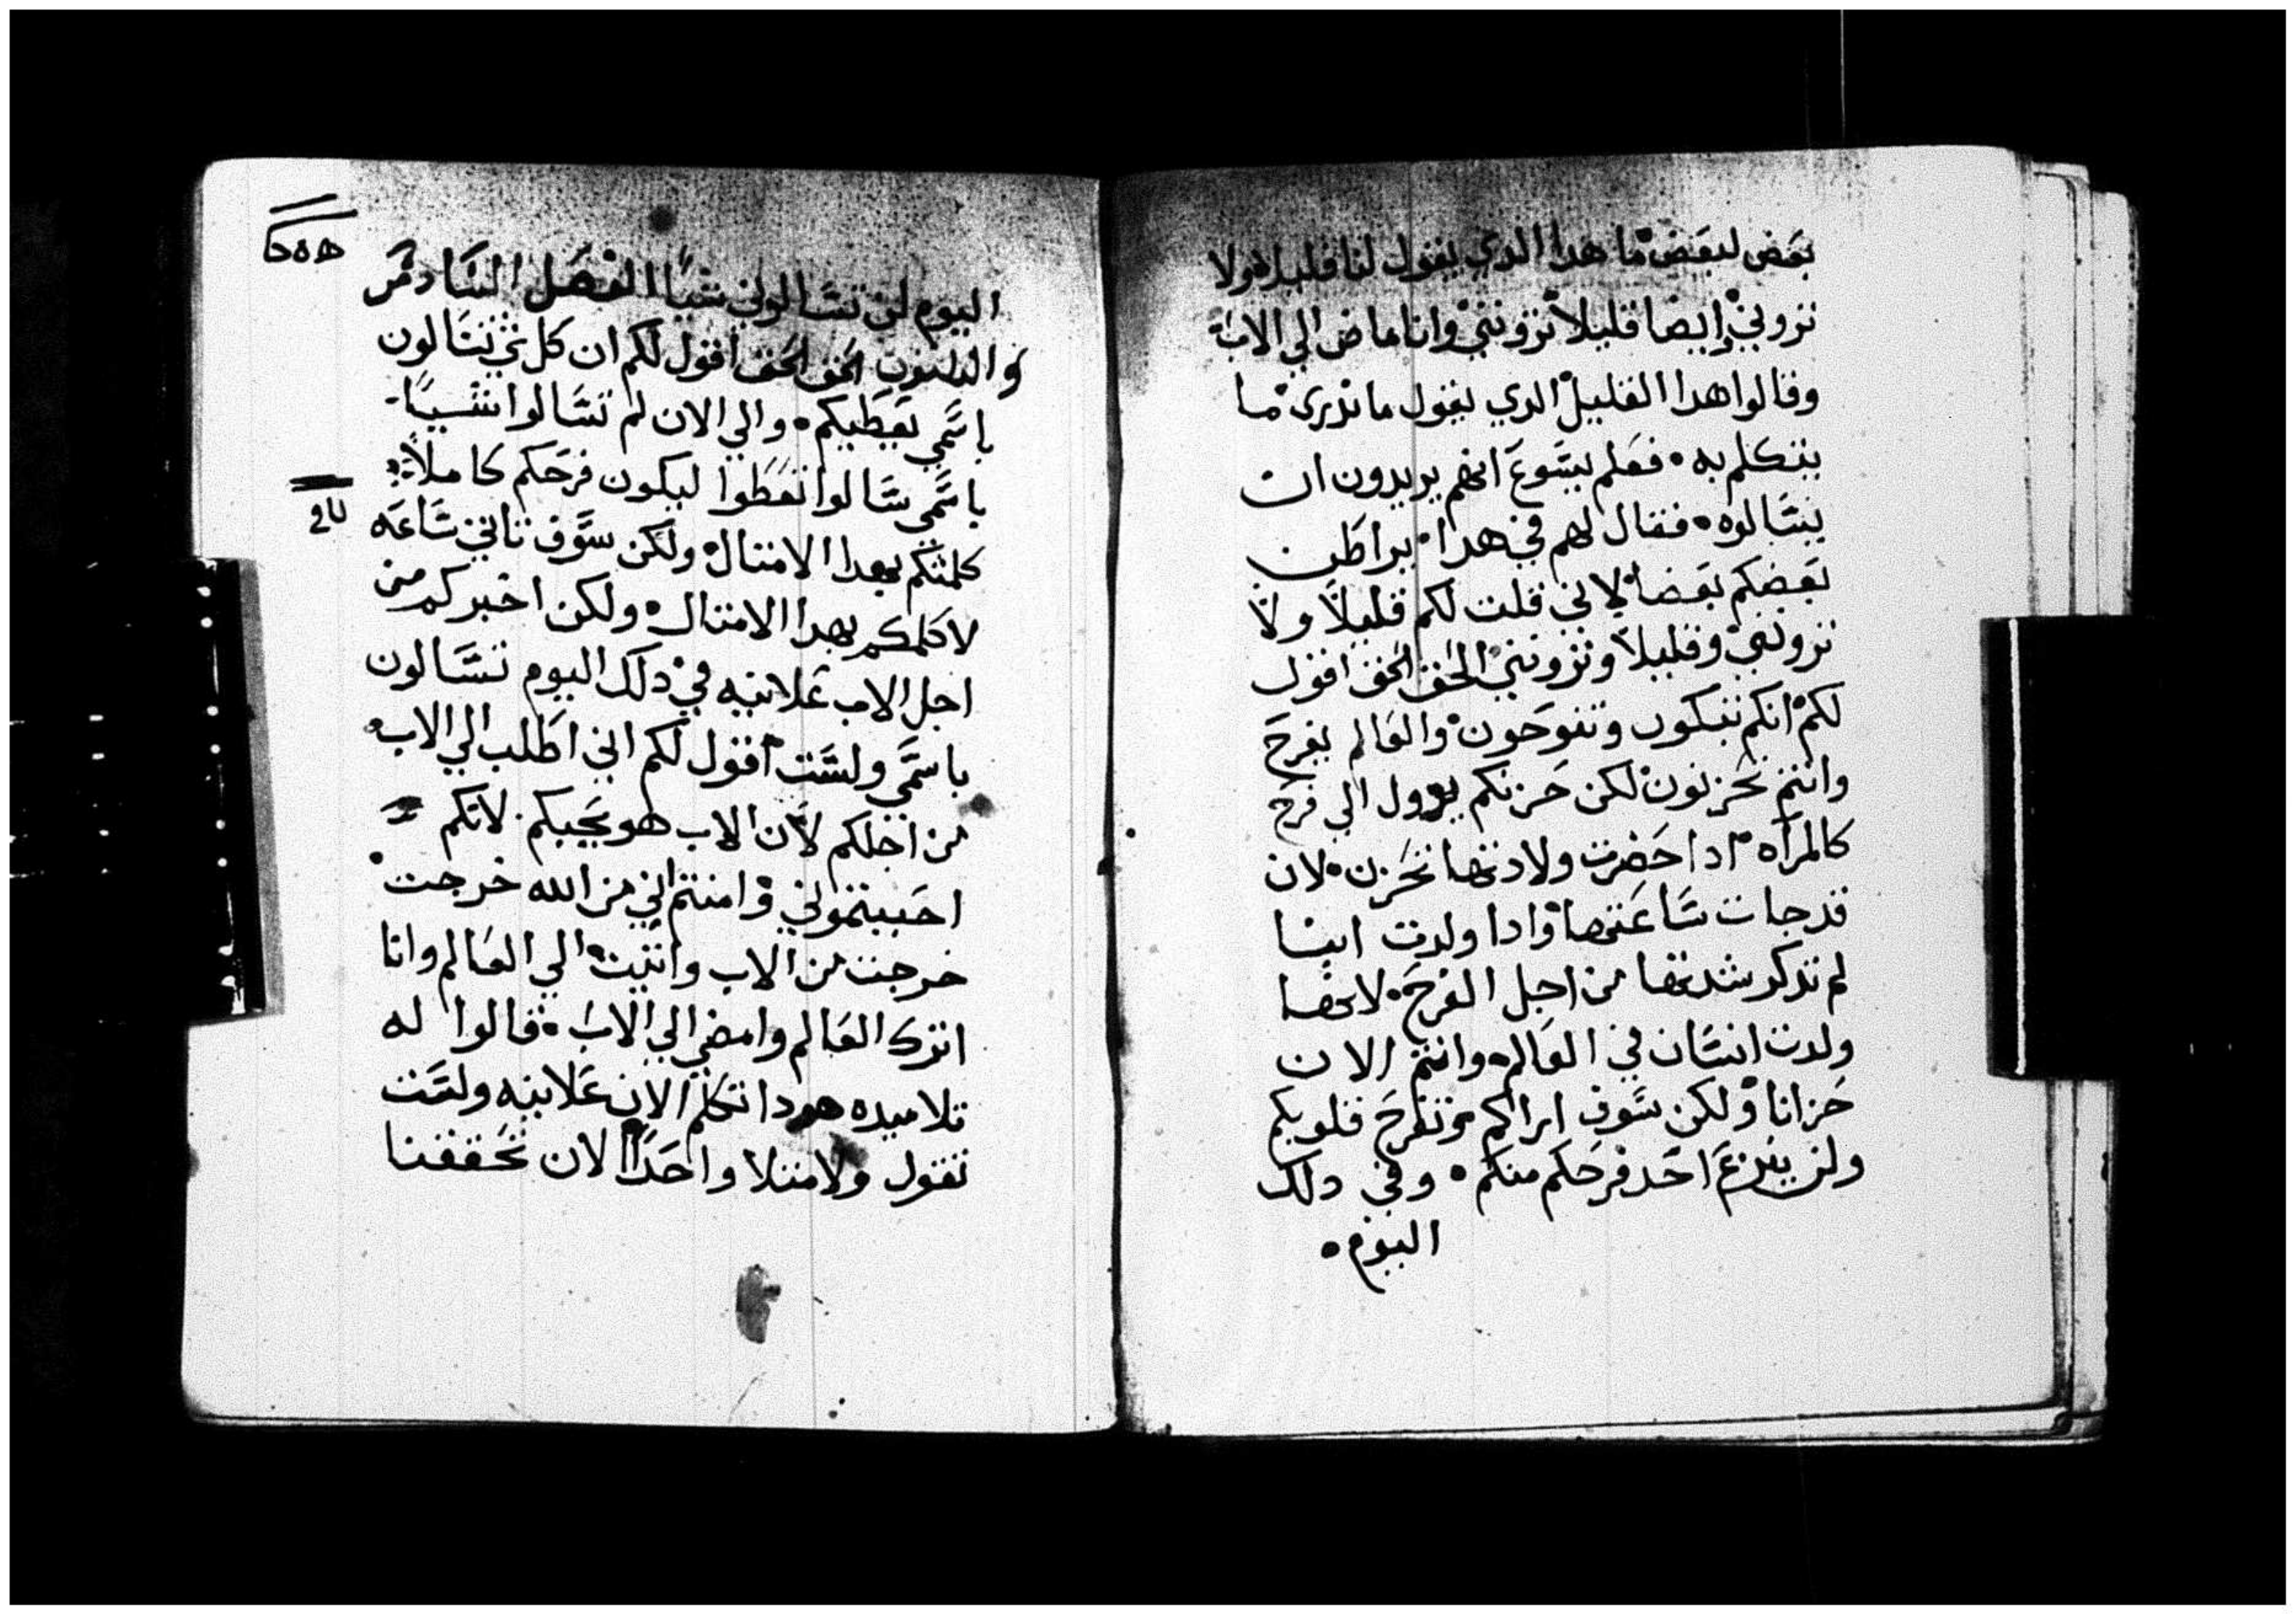 بعض لبعض ما هدا الدي يقول لنا قليلا ولا
تروني وايضا قليلا ترونني وانا ماض الي الاب
وقالوا هدا القليل الدي يقول ما ندري ما
يتكلم به • فعلم يسوع انهم يريدون ان
يسالوه • فقال لهم في هدا يراطن
بعضكم بعضا لاني قلت لكم قليلا ولا
تروني وقليلا وترونني الحق الحق اقول
لكم انكم تبكون وتنوحون والعالم يفرح
وانتم تحزنون لكن حزنكم يوول الي فرح
كالمراه ادا حضرت ولادتها تحزن • لان
قد جات ساعتها وادا ولدت ابنا
لم تدكر شدتها من اجل الفرح • لانها
ولدت انسان في العالم • وانتم الان
حزانا ولكن سوف اراكم وتفرح قلوبكم
ولن ينزع احد فرحكم منكم • وفي دلك
اليوم •
اليوم لن تسالوني شيا الفصل السادس
و الحق الحق اقول لكم ان كل شي تسالون
باسمي يعطيكم • والي الان لم تسالوا شييا
باسمي سالوا تعطوا ليكون فرحكم كاملا
كلمتكم بهدا الامتال ولكن سوف تاتي ساعه
لا اكلمكم بهدا الامتال • ولكن اخبركم من
اجل الاب علانيه في دلك اليوم تسالون
باسمي ولست اقول لكم اني اطلب الي الاب
من اجلكم لان الاب هو يحبكم • لانكم
احببتموني وامنتم اني من الله خرجت
خرجت من الاب واتيت الي العالم وانا
اترك العالم وامضي الي الاب • قالوا له
تلاميده هودا تتكلم الان علانيه ولست
تقول ولا متلا واحدا الان تحققنا